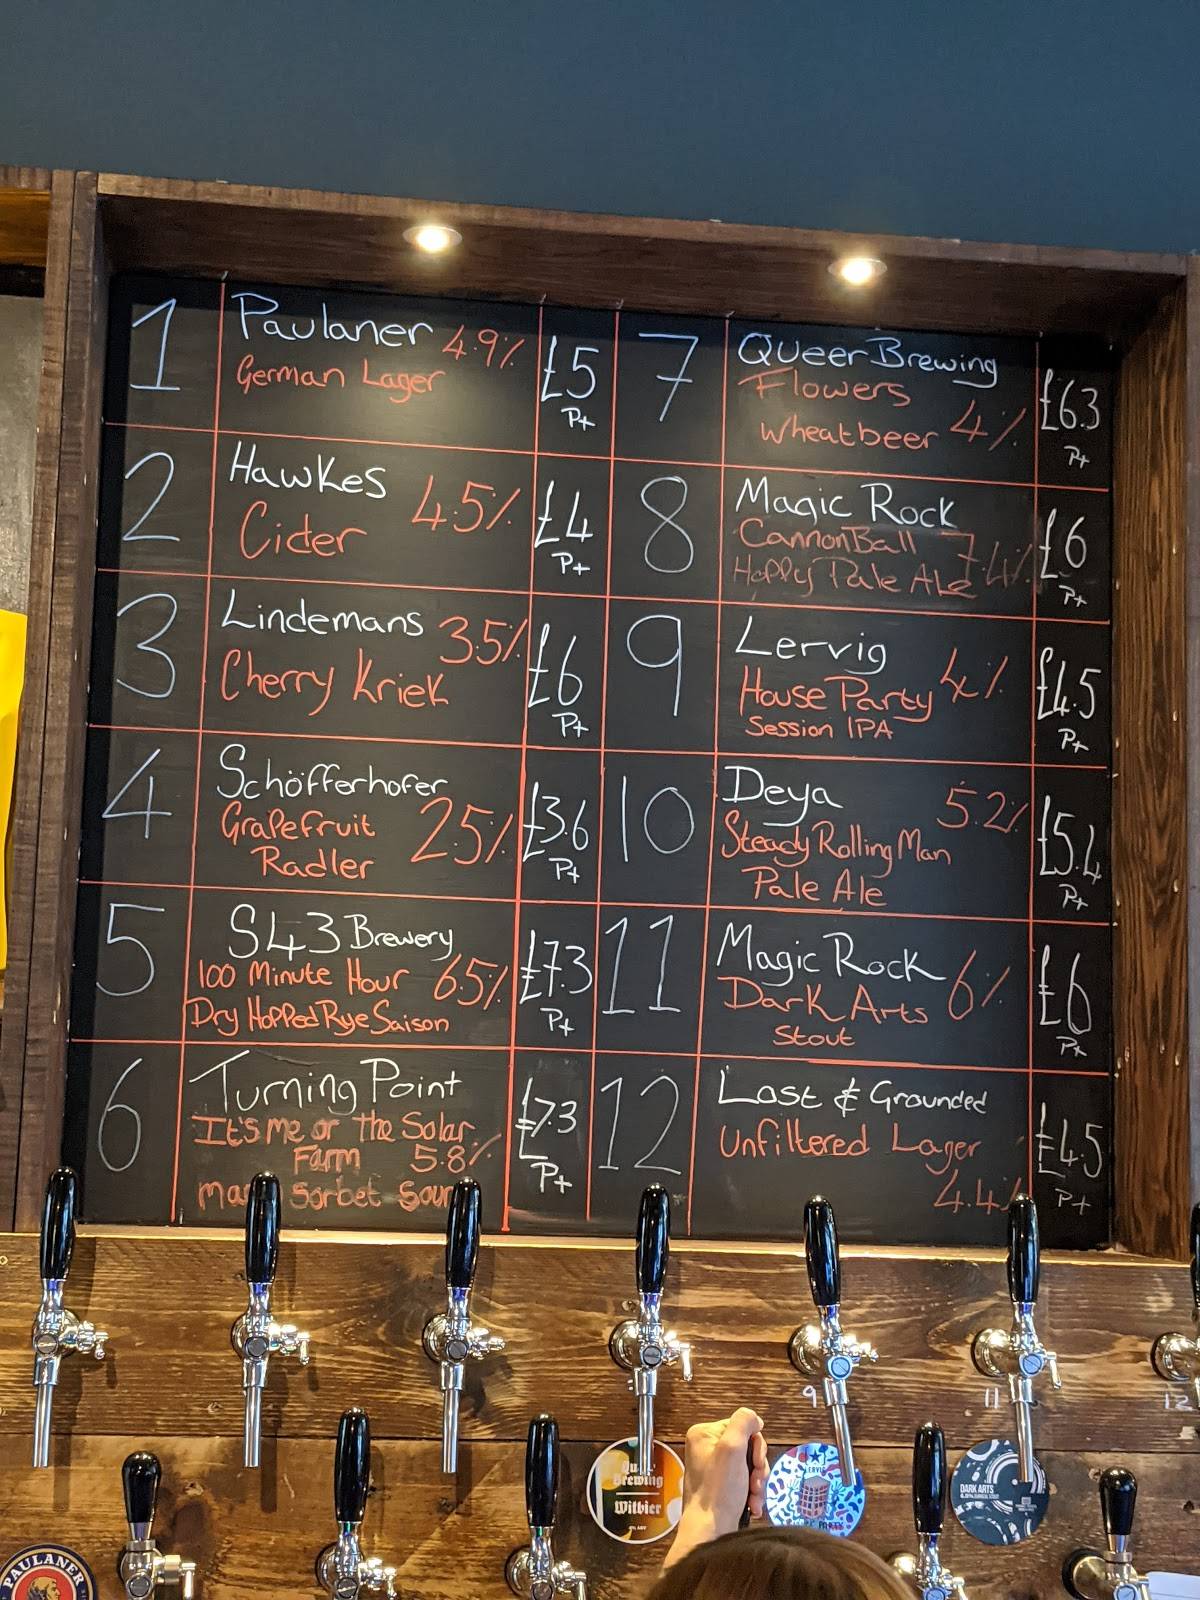 1 Paulaner 4.9% £5
German Lager Pt
2 Hawkes 4.5% £4
Cider Pt
3 Lindemans 3.5% £6
Cherry Kriek Pt
4 Schöfferhofer £3.6
Grapefruit 2.5%
Radler Pt
5 S43 Brewery £7.3
100 Minute Hour 6.5%
Dry Hopped Rye Saison Pt
6 Turning Point £7.3
It's me or the Solar
Farm 5.8% Pt
Sorbet Sour
7 Queer Brewing £6.3
Flowers
Wheatbeer 4% Pt
8 Magic Rock £6
CannonBall 7.4%
Hoppy Pale Ale Pt
9 Lervig 4% £4.5
House Party
Session IPA Pt
10 Deya 5.2% £5.4
Steady Rolling Man
Pale Ale Pt
11 Magic Rock 6% £6
Dark Arts
Stout Pt
12 Lost & Grounded £4.5
Unfiltered Lager
4.4% Pt
9
11
12
Brewing
Witbier
DARK ARTS
PARTY
PAULANER